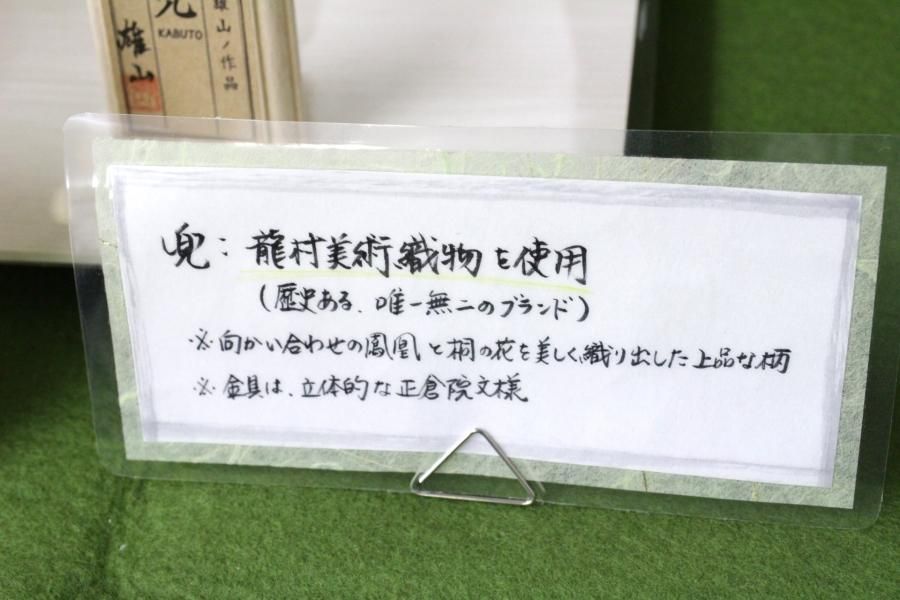 兜
KABUTO
雄山
雄山ノ作品
兜：龍村美術織物を使用
（歴史ある、唯一無二のブランド）
※向かい合わせの鳳凰と桐の花を美しく織り出した上品な柄
※金具は、立体的な正倉院文様